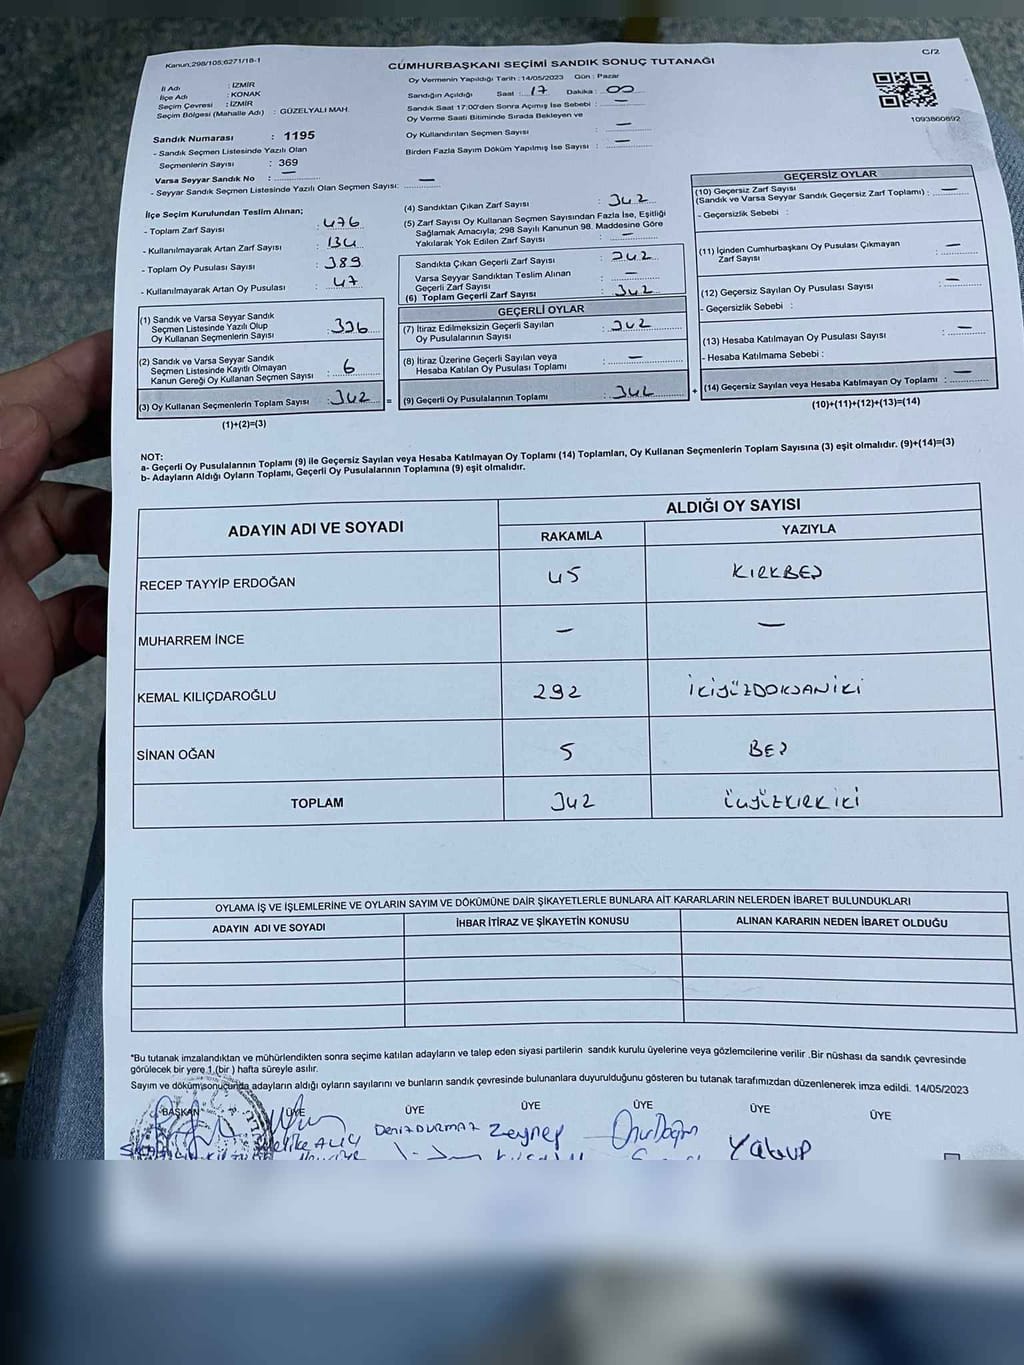 Kanun;298/105;6271/18-1
C/2
CUMHURBAŞKANI SEÇİMİ SANDIK SONUÇ TUTANAĞI
Oy Vermenin Yapıldığı Tarih :14/05/2023 Gün : Pazar
İl Adı : İZMİR
İlçe Adı : KONAK
Seçim Çevresi : İZMİR
Seçim Bölgesi (Mahalle Adı) : GÜZELYALI MAH.
Sandık Numarası : 1195
- Sandık Seçmen Listesinde Yazılı Olan
Seçmenlerin Sayısı : 369
Varsa Seyyar Sandık No : —
- Seyyar Sandık Seçmen Listesinde Yazılı Olan Seçmen Sayısı: —
Sandığın Açıldığı Saat : 17 Dakika : 00
Sandık Saat 17:00'den Sonra Açımış İse Sebebi : —
Oy Verme Saati Bitiminde Sırada Bekleyen ve
Oy Kullandırılan Seçmen Sayısı : —
Birden Fazla Sayım Döküm Yapılmış İse Sayısı : —
1093860892
İlçe Seçim Kurulundan Teslim Alınan;
- Toplam Zarf Sayısı : 476
- Kullanılmayarak Artan Zarf Sayısı : 134
- Toplam Oy Pusulası Sayısı : 389
- Kullanılmayarak Artan Oy Pusulası : 47
(1) Sandık ve Varsa Seyyar Sandık
Seçmen Listesinde Yazılı Olup
Oy Kullanan Seçmenlerin Sayısı : 336
(2) Sandık ve Varsa Seyyar Sandık
Seçmen Listesinde Kayıtlı Olmayan
Kanun Gereği Oy Kullanan Seçmen Sayısı : 6
(3) Oy Kullanan Seçmenlerin Toplam Sayısı : 342
(1)+(2)=(3)
=
(4) Sandıktan Çıkan Zarf Sayısı : 342
(5) Zarf Sayısı Oy Kullanan Seçmen Sayısından Fazla İse, Eşitliği
Sağlamak Amacıyla; 298 Sayılı Kanunun 98. Maddesine Göre
Yakılarak Yok Edilen Zarf Sayısı : —
Sandıkta Çıkan Geçerli Zarf Sayısı : 342
Varsa Seyyar Sandıktan Teslim Alınan
Geçerli Zarf Sayısı : —
(6) Toplam Geçerli Zarf Sayısı : 342
GEÇERLİ OYLAR
(7) İtiraz Edilmeksizin Geçerli Sayılan
Oy Pusulalarının Sayısı : 342
(8) İtiraz Üzerine Geçerli Sayılan veya
Hesaba Katılan Oy Pusulası Toplamı : —
(9) Geçerli Oy Pusulalarının Toplamı : 342
+
GEÇERSİZ OYLAR
(10) Geçersiz Zarf Sayısı
(Sandık ve Varsa Seyyar Sandık Geçersiz Zarf Toplamı) : —
- Geçersizlik Sebebi :
(11) İçinden Cumhurbaşkanı Oy Pusulası Çıkmayan
Zarf Sayısı : —
(12) Geçersiz Sayılan Oy Pusulası Sayısı : —
- Geçersizlik Sebebi :
(13) Hesaba Katılmayan Oy Pusulası Sayısı : —
- Hesaba Katılmama Sebebi :
(14) Geçersiz Sayılan veya Hesaba Katılmayan Oy Toplamı : —
(10)+(11)+(12)+(13)=(14)
NOT:
a- Geçerli Oy Pusulalarının Toplamı (9) ile Geçersiz Sayılan veya Hesaba Katılmayan Oy Toplamı (14) Toplamları, Oy Kullanan Seçmenlerin Toplam Sayısına (3) eşit olmalıdır. (9)+(14)=(3)
b- Adayların Aldığı Oyların Toplamı, Geçerli Oy Pusulalarının Toplamına (9) eşit olmalıdır.
ADAYIN ADI VE SOYADI
ALDIĞI OY SAYISI
RAKAMLA YAZIYLA
RECEP TAYYİP ERDOĞAN 45 KIRKBEŞ
MUHARREM İNCE — —
KEMAL KILIÇDAROĞLU 292 İKİYÜZDOKSANİKİ
SİNAN OĞAN 5 BEŞ
TOPLAM 342 ÜÇYÜZKIRKİKİ
OYLAMA İŞ VE İŞLEMLERİNE VE OYLARIN SAYIM VE DÖKÜMÜNE DAİR ŞİKAYETLERLE BUNLARA AİT KARARLARIN NELERDEN İBARET BULUNDUKLARI
ADAYIN ADI VE SOYADI İHBAR İTİRAZ VE ŞİKAYETİN KONUSU ALINAN KARARIN NEDEN İBARET OLDUĞU
*Bu tutanak imzalandıktan ve mühürlendikten sonra seçime katılan adayların ve talep eden siyasi partilerin sandık kurulu üyelerine veya gözlemcilerine verilir .Bir nüshası da sandık çevresinde
görülecek bir yere 1 (bir ) hafta süreyle asılır.
Sayım ve döküm sonucunda adayların aldığı oyların sayılarını ve bunların sandık çevresinde bulunanlara duyurulduğunu gösteren bu tutanak tarafımızdan düzenlenerek imza edildi. 14/05/2023
BAŞKAN ÜYE ÜYE ÜYE ÜYE ÜYE ÜYE
DENİZ DURMAZ Zeynep Onur Doğan Yakup